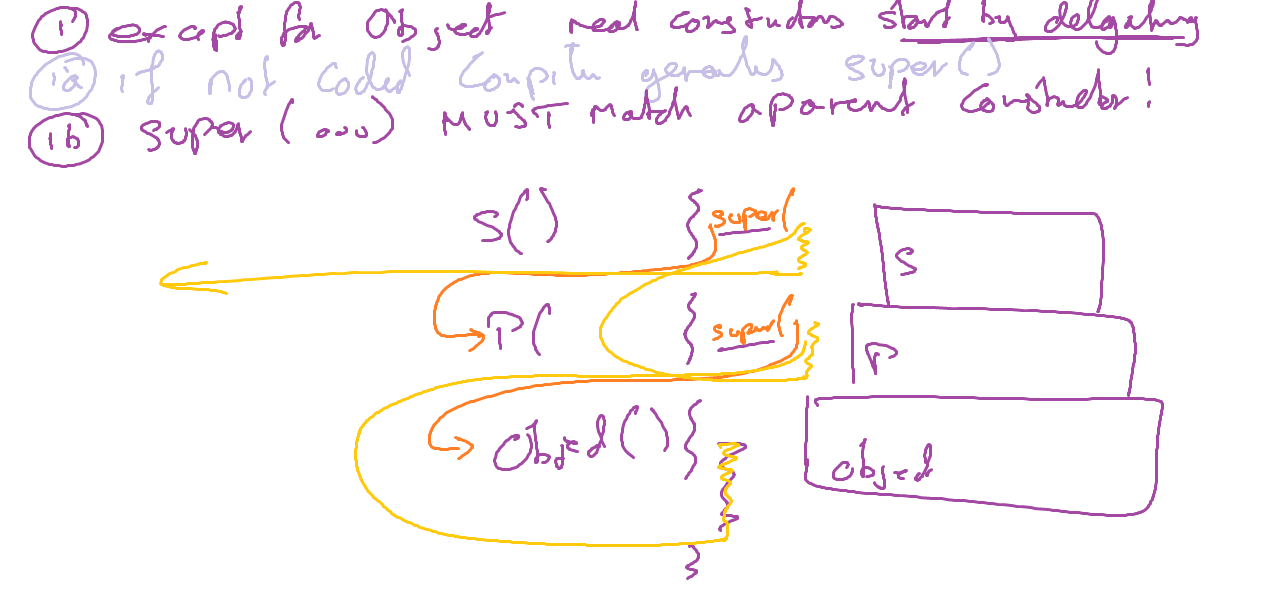 1 except for Object real constructors start by delgating
1a if not coded Compiler generates super()
1b super (...) MUST Match a parent Constructor!
S() { super(
S
P( { super(
P
Object() {
Object
}